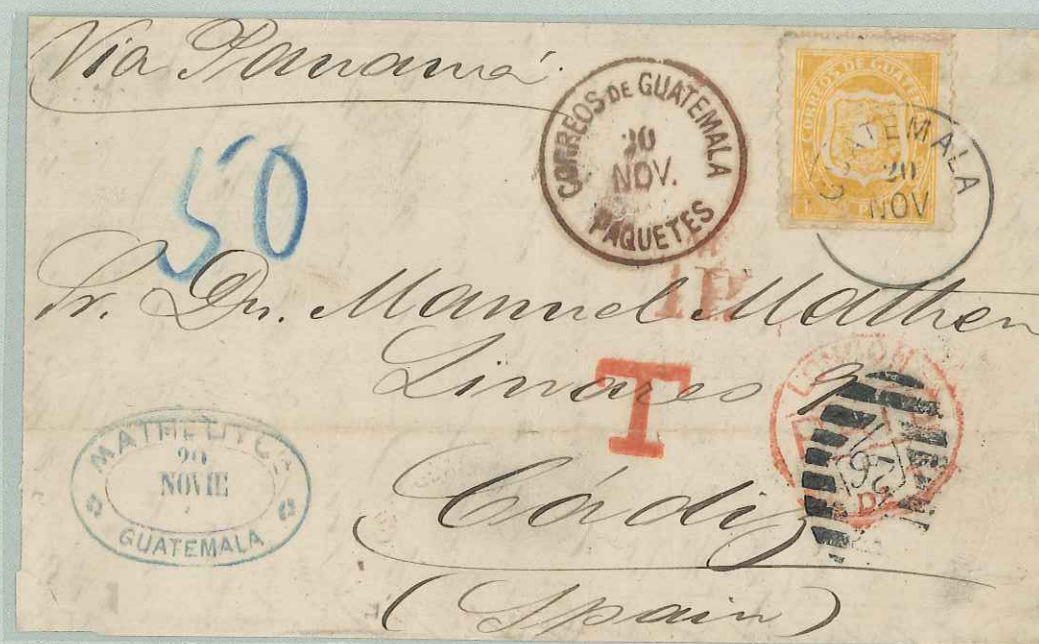 Via Panamá.
CORREOS DE GUATEMALA
20
NOV.
PAQUETES
CORREOS DE GUATE
GUATEMALA
20
NOV
50
Sr. Dn. Manuel Matheu
T
Linares 9
LONDON
Cádiz
(Spain)
MATHEU Y Ca
20
NOVIE
GUATEMALA